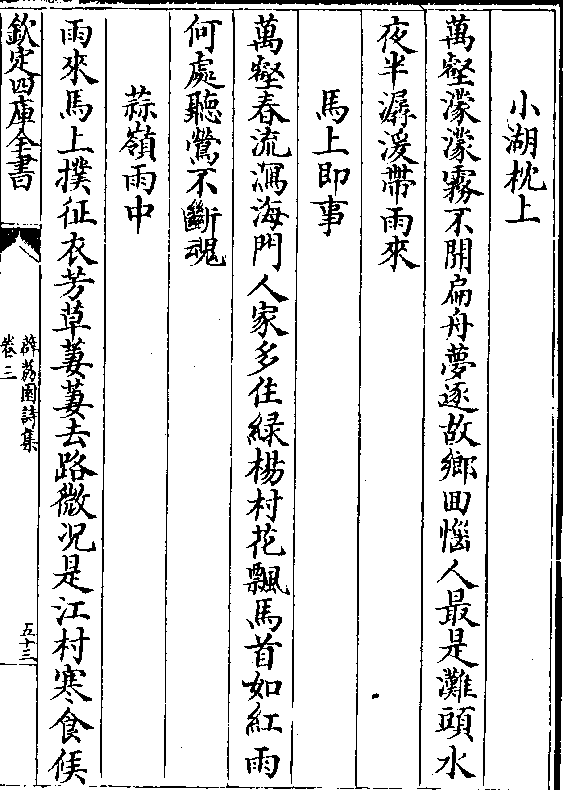 小湖枕上
萬壑濛濛霧不開扁舟夢逐故鄉囬惱人最是灘頭水
夜半潺湲帶雨來
馬上即事
萬壑春流瀉海門人家多住綠楊村花飄馬首如紅雨
何處聽鶯不斷魂
蒜嶺雨中
雨來馬上撲征衣芳草萋萋去路微况是江村寒食候
欽定四庫全書
薜荔園詩集
卷三
五十三